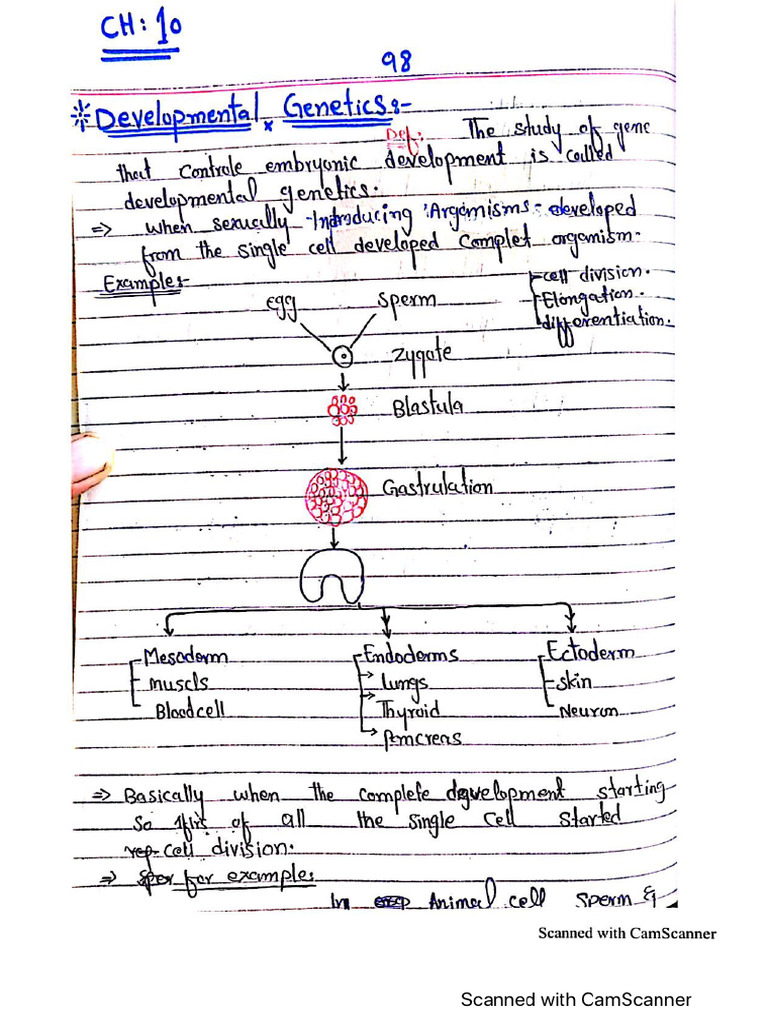 CH: 10
98
Developmental Genetics:-
Def: The study of gene
that controle embryonic development is called
developmental genetics.
=> when sexually Introducing Argamisms developed
from the single cell developed Complet organism.
Examples:-
cell division.
Elongation.
differentiation.
egg sperm
Zygate
Blastula
Gastrulation
Mesoderm Endoderms Ectoderm
muscls Lungs skin
Blood cell Thyroid Neuron
Pancreas
=> Basically when the complete development starting
So first of all the single cell started
cell division.
=> for example:
In Animal cell sperm &
Scanned with CamScanner
Scanned with CamScanner